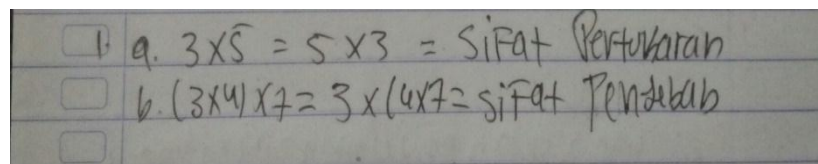 1. a. 3x5 = 5 x 3 = Sifat Pertukaran
b. (3x4)x7 = 3 x (4x7 = Sifat Pendebab